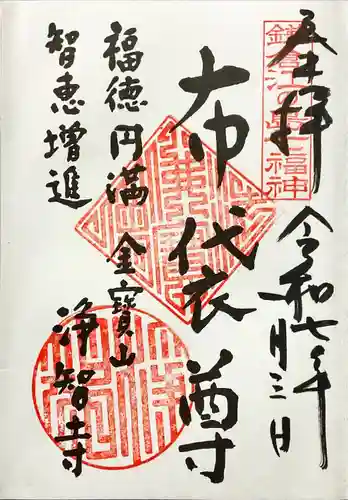 奉拝
鎌倉江の島七福神
令和七年
一月三日
布袋尊
福徳円満
金寶山
智恵増進
浄智寺